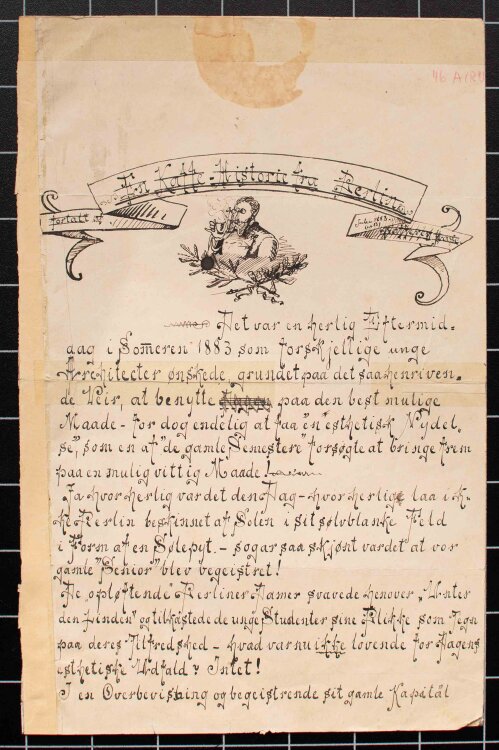 46 A/RU
En Kaffe-Historie fra Berlin
fortalt af
Det var en herlig Eftermid-
dag i Som̄eren 1883 som forskjellige unge
Architecter ønskede, grundet paa det saa henriven-
de Veir, at benytte paa den best mulige
Maade - for dog endelig at faa "en" esthetisk Nydel-
se", som en af "de gamle Semestere" forsøgte at bringe frem
paa en mulig vittig Maade!
Ja hvor herlig var det den Dag - hvor herlig laa ik-
ke Berlin beskinnet af Solen i sit sølvblanke Feld
i Form af en Solepyt. - sogar saa skjønt var det at vor
gamle "Senior" blev begeistret!
De "opløftende" Berliner Damer svævede henover "Unter
den Linden" og tilkastede de unge Studenter sine Blikke som Tegn
paa deres Tilfredshed - hvad var nu ikke lovende for Dagens
esthetiske Udfald? Intet!
I en Overbevisning og begeistrende sit gamle Kapitäl